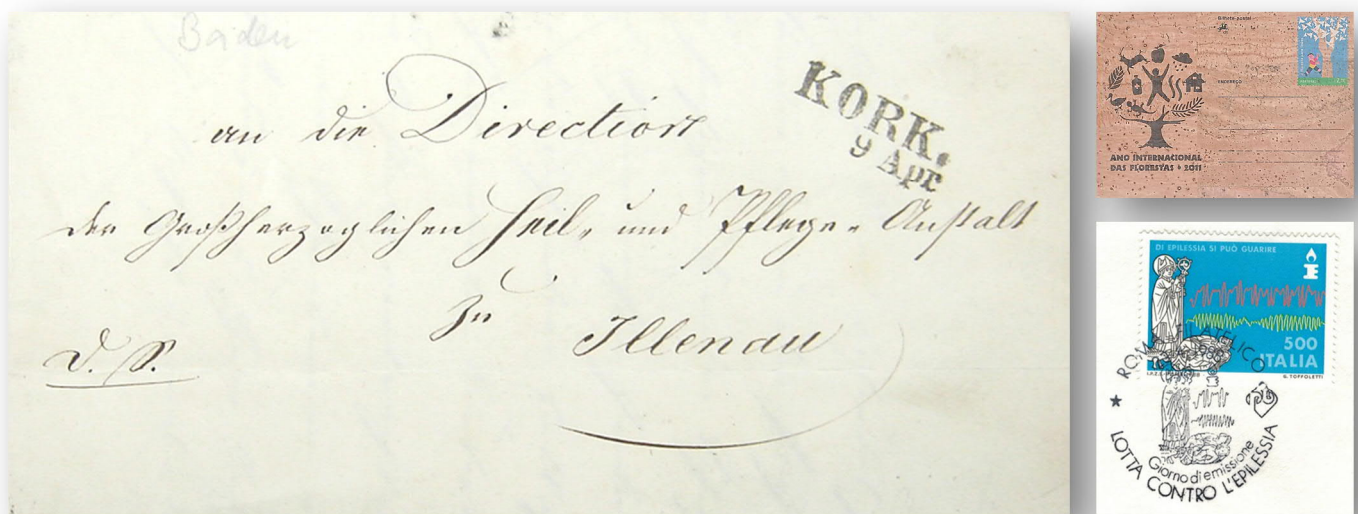 Baden
an die Direction
der Großherzoglichen Heil- und Pflege-Anstalt
zu
Illenau
D. S.
KORK.
9 Apr
Bilhete-postal
ENDEREÇO
ANO INTERNACIONAL
DAS FLORESTAS • 2011
DI EPILESSIA SI PUÒ GUARIRE
500
ITALIA
B. TOFFOLETTI
ROMA FILATELICO
Giorno di emissione
LOTTA CONTRO L'EPILESSIA